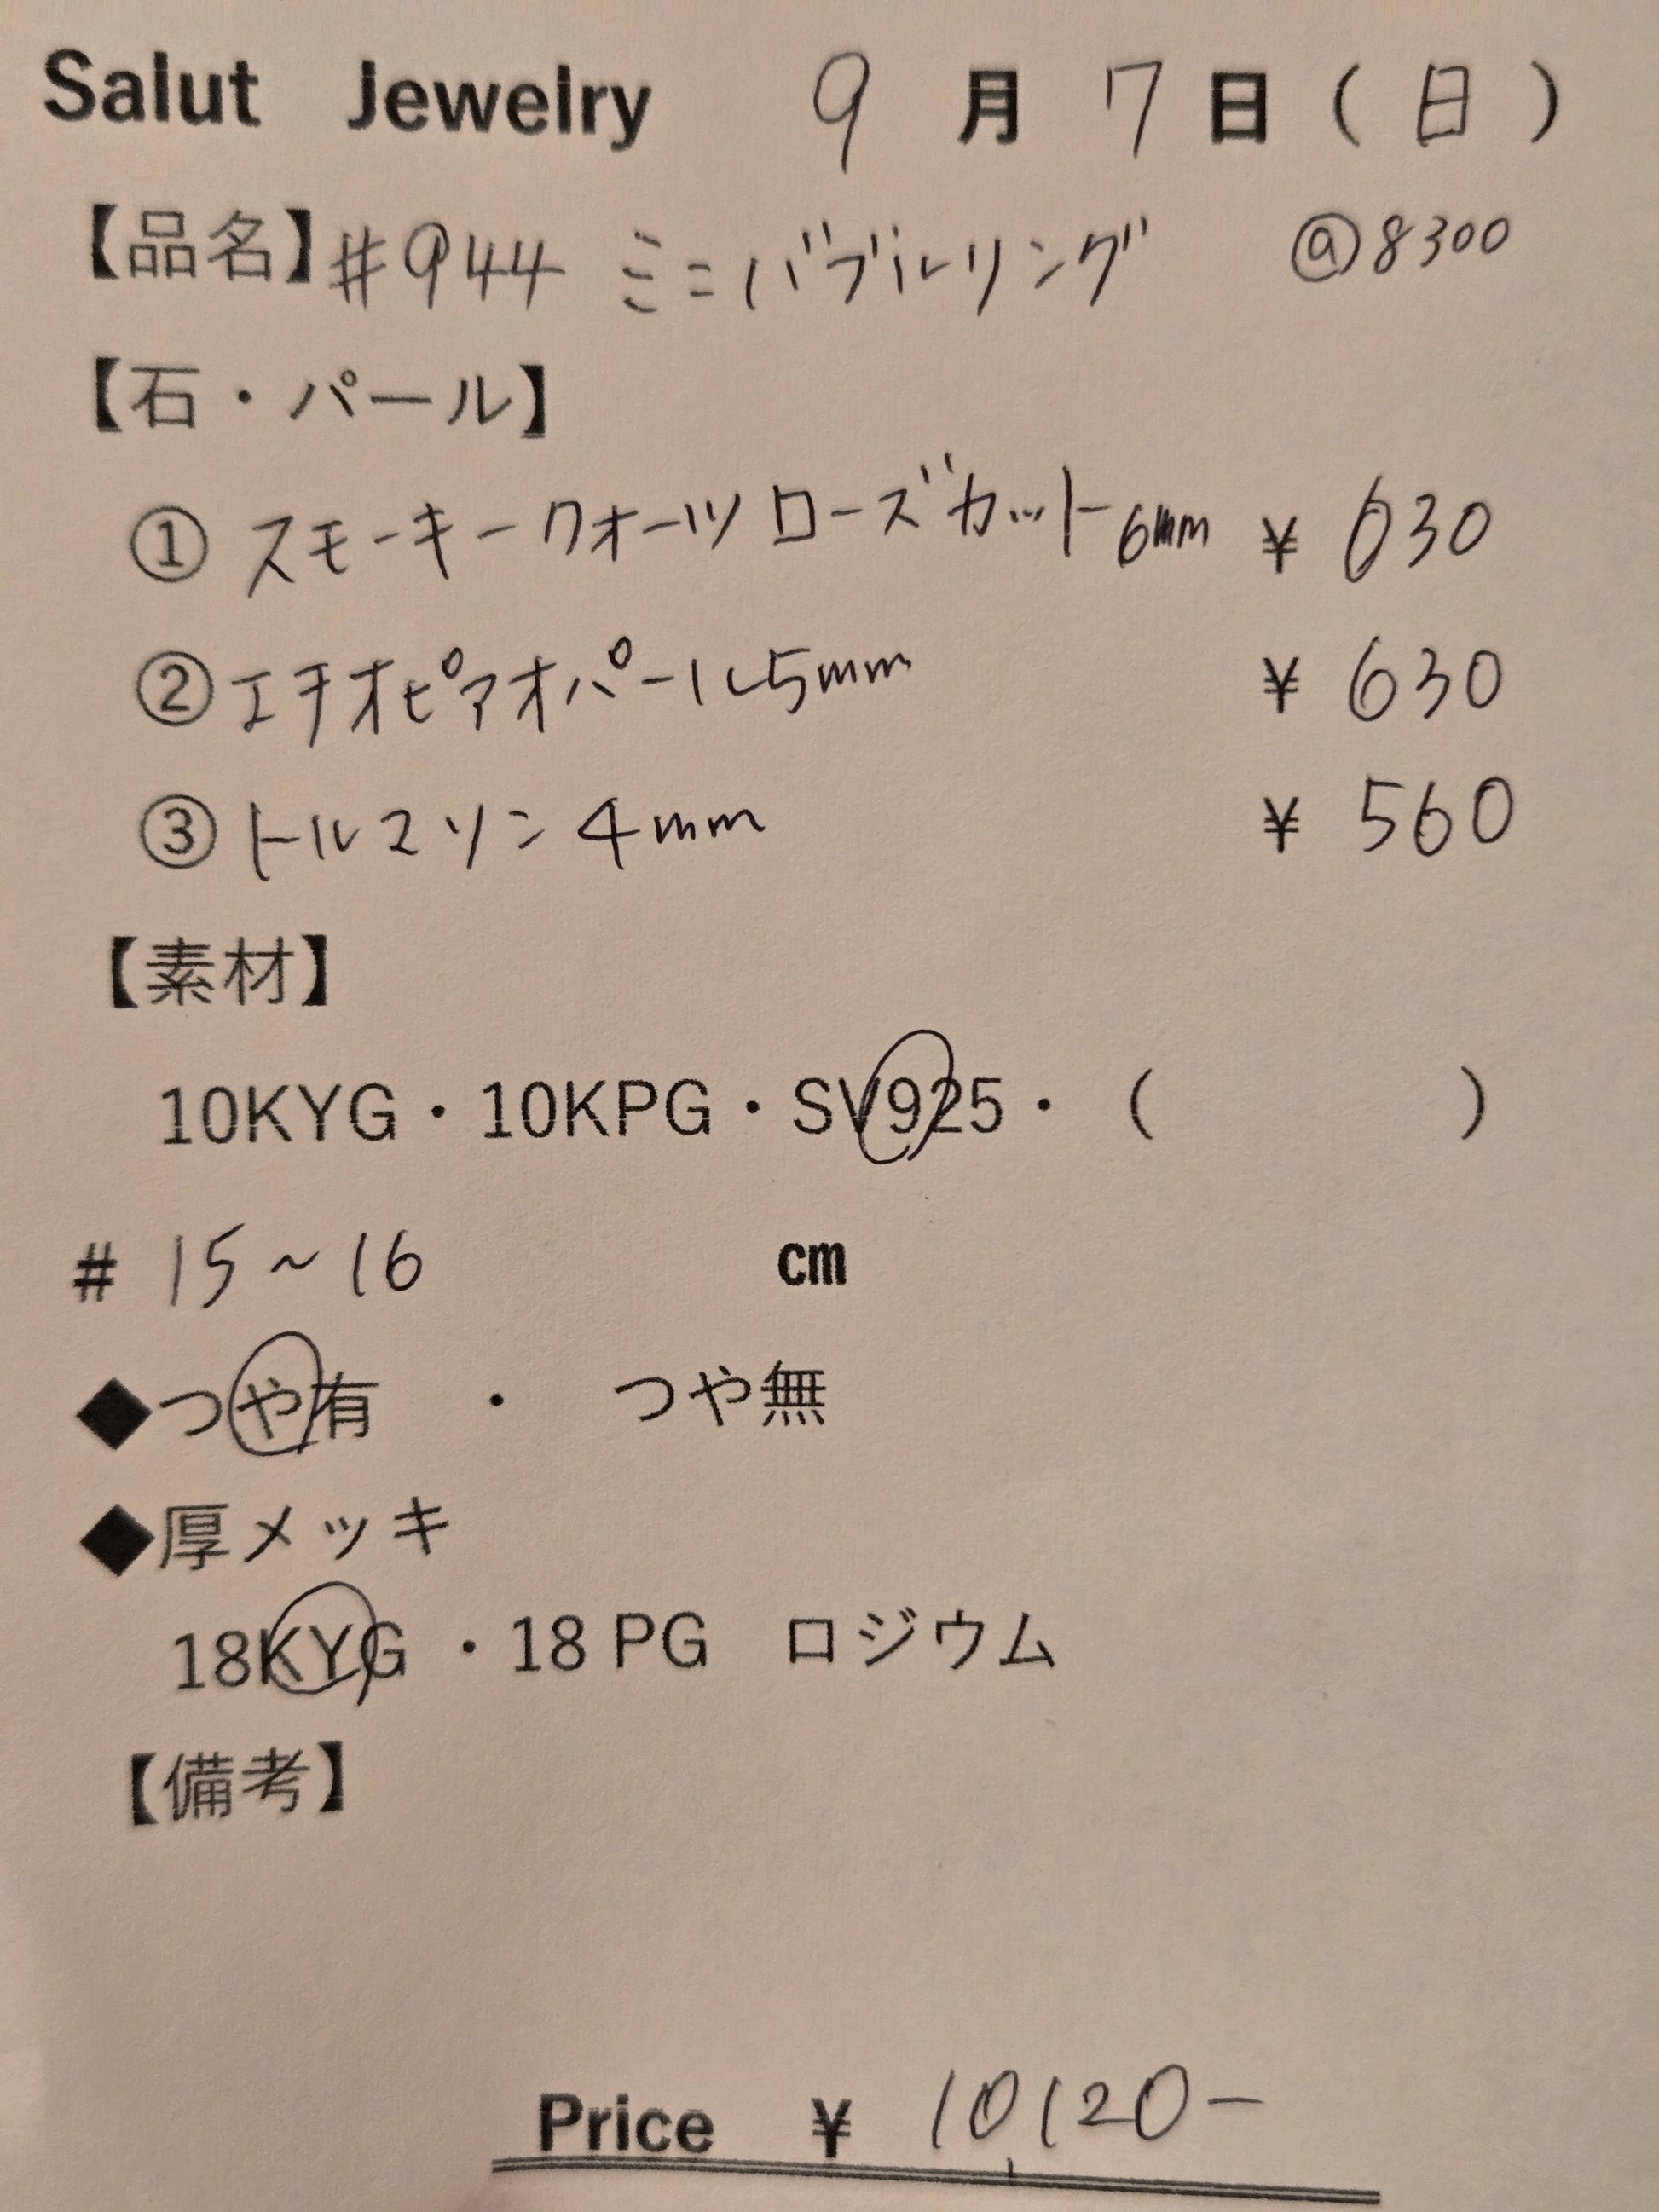 Salut Jewelry 9月7日(日)
【品名】#944 ミニバブルリング @8300
【石・パール】
① スモーキークォーツ ローズカット6mm ¥630
② エチオピアオパール5mm ¥630
③ トルマリン4mm ¥560
【素材】
10KYG・10KPG・SV925・( )
# 15~16 cm
◆つや有 ・ つや無
◆厚メッキ
18KYG ・18 PG ロジウム
【備考】
Price ¥ 10,120-